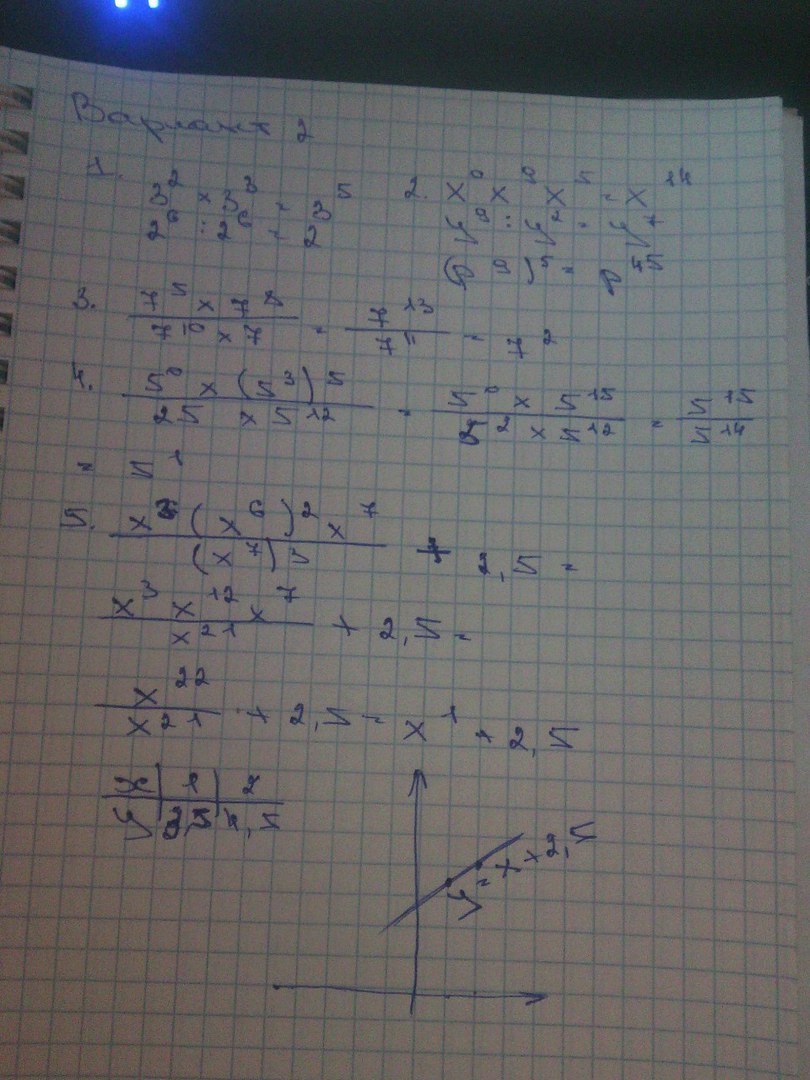 Вариант 2
1. 3² × 3³ = 3⁵
2⁶ : 2⁶ = 2
2. x⁰ x⁹ x⁵ = x¹⁴
y⁹ : y² = y⁷
(p⁹)⁵ = p⁴⁵
3. 7⁵ × 7⁸ / 7¹⁰ × 7 = 7¹³ / 7¹¹ = 7²
4. 5⁰ × (5³)⁵ / 25 × 5¹² = 5⁰ × 5¹⁵ / 5² × 5¹² = 5¹⁵ / 5¹⁴
= 5¹
5. x³ (x⁶)² x⁷ / (x⁷)³ + 2,5 =
x³ x¹² x⁷ / x²¹ + 2,5 =
x²² / x²¹ + 2,5 = x¹ + 2,5
x | 1 | 2
y | 3,5 | 4,5
y = x + 2,5